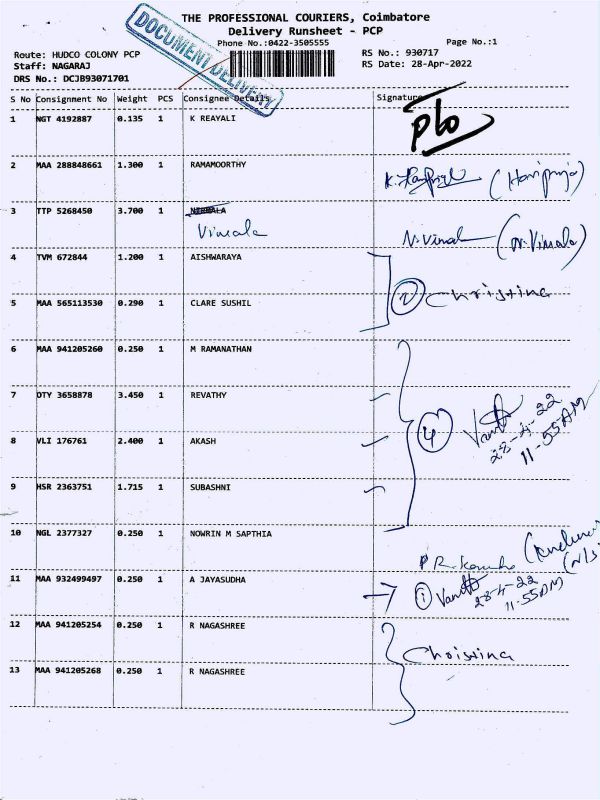 THE PROFESSIONAL COURIERS, Coimbatore
Delivery Runsheet - PCP
Phone No.:0422-3505555
Page No.:1
Route: HUDCO COLONY PCP
RS No.: 930717
Staff: NAGARAJ
RS Date: 28-Apr-2022
DRS No.: DCJB93071701
DOCUMENT DELIVERY
S No Consignment No Weight PCS Consignee Details Signature
1 NGT 4192887 0.135 1 K REAYALI
2 MAA 288848661 1.300 1 RAMAMOORTHY (Haripriya)
3 TTP 5268450 3.700 1 NIRMALA
Vimala N.Vimal (N.Vimala)
4 TVM 672844 1.200 1 AISHWARAYA
2 Christina
5 MAA 565113530 0.290 1 CLARE SUSHIL
6 MAA 941205260 0.250 1 M RAMANATHAN
7 OTY 3658878 3.450 1 REVATHY
4 28-4-22
11-55AM
8 VLI 176761 2.400 1 AKASH
9 HSR 2363751 1.715 1 SUBASHNI
10 NGL 2377327 0.250 1 NOWRIN M SAPTHIA
11 MAA 932499497 0.250 1 A JAYASUDHA
1 28-4-22
11.55AM
12 MAA 941205254 0.250 1 R NAGASHREE
Christina
13 MAA 941205268 0.250 1 R NAGASHREE